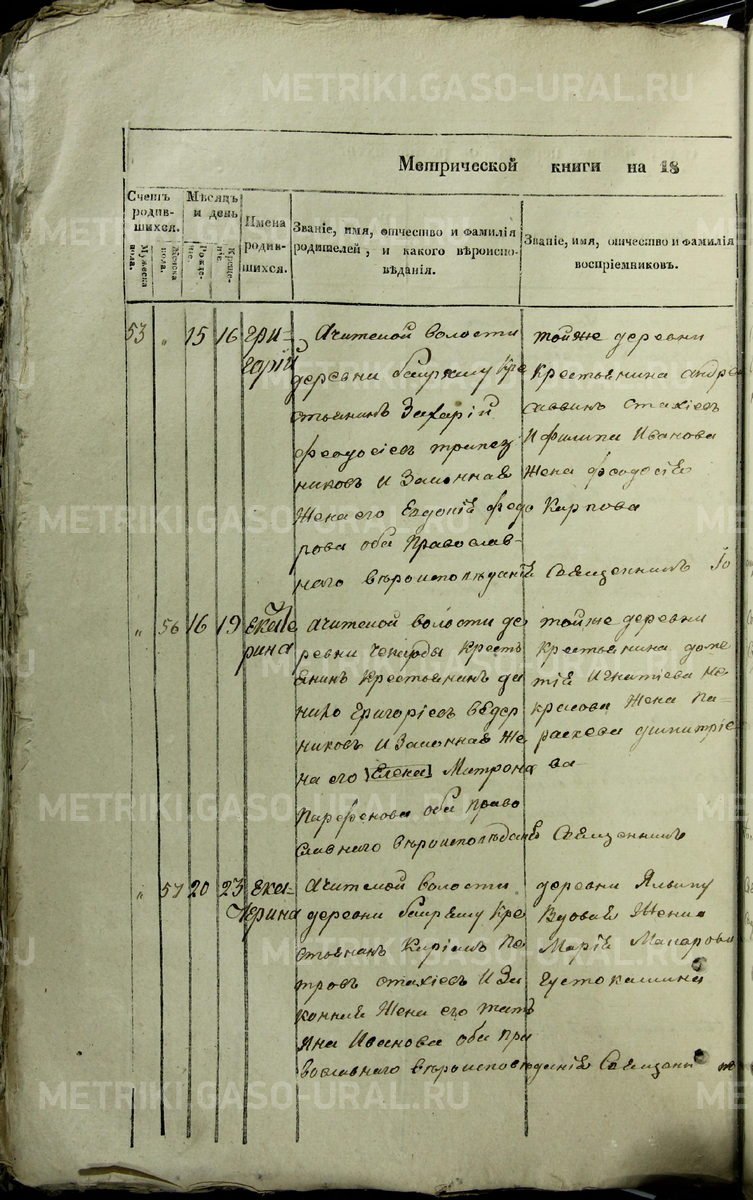 METRIKI.GASO-URAL.RU
Метрической книги на 18
Счетъ родив-шихся.
Мужеска пола.
Женска пола.
Мѣсяцъ и день
Рожде-ніе.
Креще-ніе.
Имена родив-шихся.
Званіе, имя, отчество и фамилія родителей, и какого вѣроиспо-вѣданія.
Званіе, имя, отчество и фамилія воспріемниковъ.
53 „ 15 16 Гри-
горій
Ачитской волости
деревни кре
стьянинъ Захарій
феодосіевъ трапез
никовъ и Законная
жена его Евдокія федо
рова оба Православ-
наго вѣроисповѣданія
тойже деревни
крестьянина андре
саввинъ стахіевъ
и филипа Иванова
жена феодосія
Карпова
Священникъ Іо
„ 56 16 19 Екате
рина
Ачитской волости де
ревни Кресть
янинъ Крестьянинъ да
нило григоріевъ ведер
никовъ и Законная же
на его [Елена] Матрона
Парфенова оба право
славнаго вѣроисповѣданія
тойже деревни
Крестьянина доме
тія Игнатіева не
красова жена Па-
раскева димитріе
ва
Священникъ
„ 57 20 23 Ека-
терина
Ачитской волости
деревни кре
стьянинъ Киріакъ Пе
тровъ стахіевъ и За
конная жена его тать
яна Иванова оба пра
вославнаго вѣроисповѣданія
деревни
Вдовая жена
Марія Макарова
Густокашина
Священни